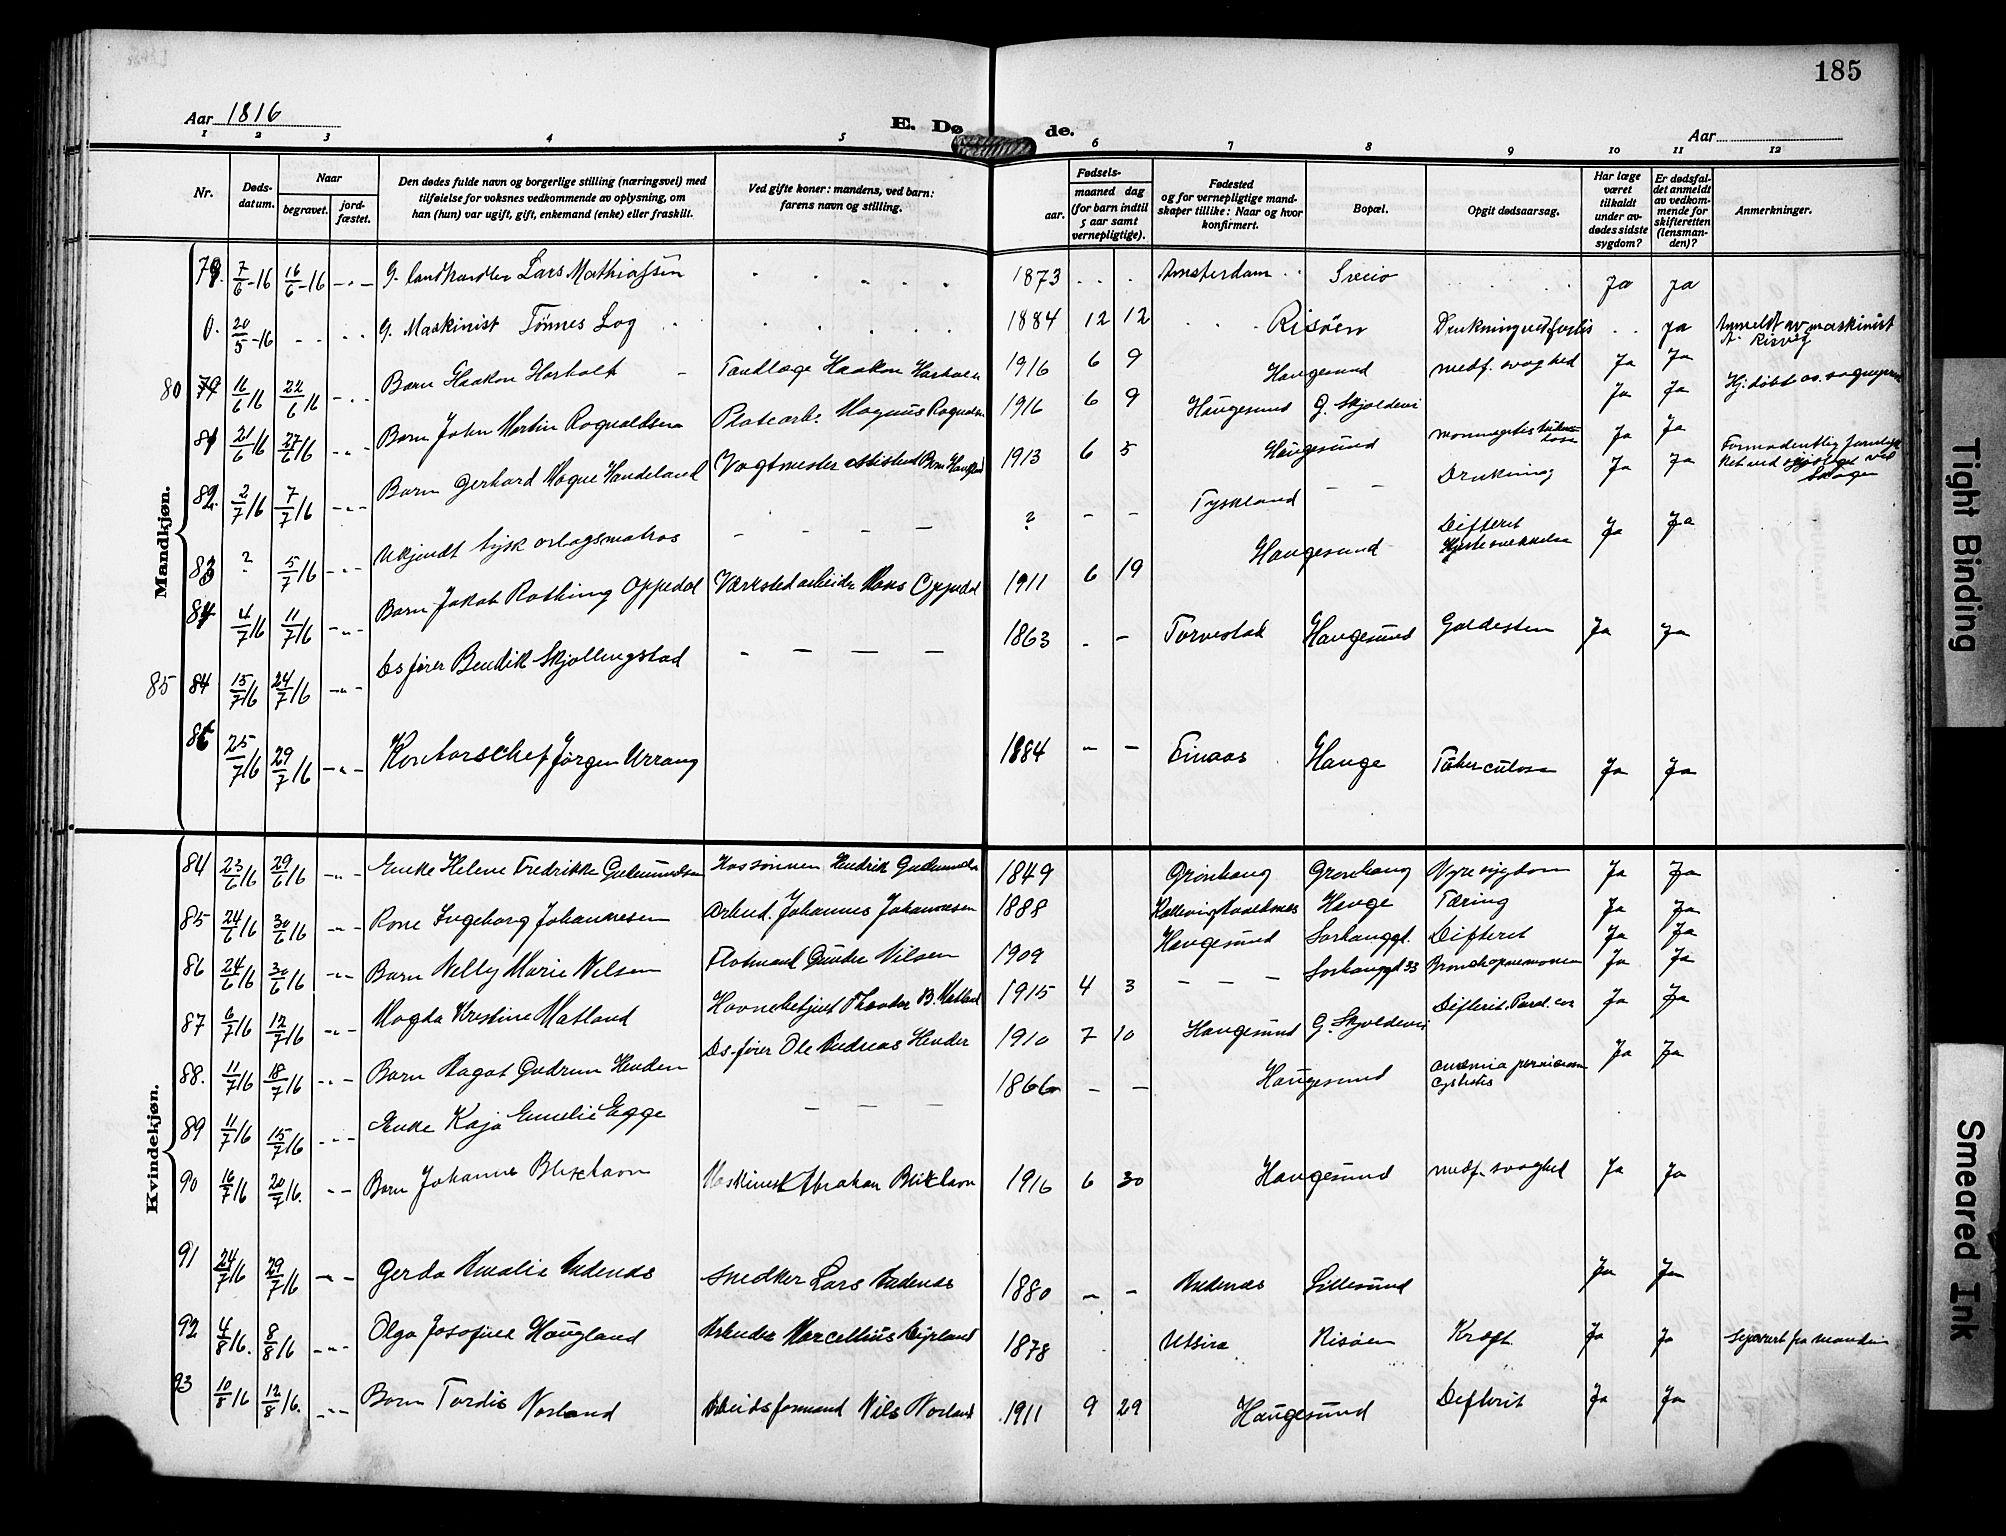 185
Aar 1816
E. Døde.
Aar
1 2 3 4 5 6 7 8 9 10 11 12
Nr.
Døds-datum.
Naar
begravet.
jord-fæstet.
Den dødes fulde navn og borgerlige stilling (næringsvei) med
tilføielse for voksnes vedkommende av oplysning, om
han (hun) var ugift, gift, enkemand (enke) eller fraskilt.
Ved gifte koner: mandens, ved barn:
farens navn og stilling.
Fødsels-
aar.
maaned dag
(for barn indtil
5 aar samt
vernepligtige).
Fødested
og for vernepligtige mand-
skaper tillike: Naar og hvor
konfirmert.
Bopæl.
Opgit dødsaarsag.
Har læge
været
tilkaldt
under av-
dødes sidste
sygdom?
Er dødsfal-
det anmeldt
av vedkom-
mende for
skifteretten
(lensman-
den)?
Anmerkninger.
Mandkjøn.
7/6-16 16/6-16 G. Landhandler Lars Mathiassen 1873 Amsterdam Sveio Ja Ja
0. 20/5-16 G. Maskinist Tönnes Log 1884 12 12 Risöen Drukning ved forlis Ja Anmeldt av maskinist
80 79 16/6 16 22/6 16 Barn Haakon Hasholt Tandlæge Haakon 1916 6 9 Haugesund medf. svaghed Ja Ja Hj. döbt
81 21/6 16 27/6 16 Barn John Martin Rogvaldsen Platearb. Magnus 1916 6 9 Haugesund G. Skjoldevei Ja Ja
82. 2/7 16 7/7 16 Barn Gerhard Moque Handeland Vagtmester 1913 6 5 Haugesund Ja Ja
83 ? 5/7 16 Ukjendt tysk orlogsmatros ? Tyskland Drukning Ja Ja Formodentlig
84 4/7 16 11/7 16 Barn Jakob Rothing Oppedal Værkstedarbeider Hans Oppedal 1911 6 19 Haugesund Difterit Ja Ja
85 84 15/7 16 24/7 16 Dsfører Bendik Skjollingstad 1863 Torvestad Haugesund Galdesten Ja Ja
86 25/7 16 29/7 16 Kontorschef Jørgen Urrang 1884 Einaas Hauge Tuberculose Ja Ja
Kvindekjøn.
84 23/6 16 29/6 16 Enke Helene Fredrikke Gudmundsen Hos sønnen Hendrik 1849 Grønhaug Gronhaug Nyresygdom Ja Ja
85 24/6 16 30/6 16 Kone Ingeborg Johannesen Arbeid. Johannes Johannesen 1888 Hauge Tæring Ja Ja
86 24/6 16 30/6 16 Barn Nelly Marie Nilsen Flotmand Gunder Nilsen 1909 Haugesund Sorhauggt. Difterit Ja Ja
87 6/7 16 12/7 16 Magda Kristine Matland Havnebetjent Theodor B. Matland 1915 4 3 Sorhauggt 33 Ja Ja
88. 11/7 16 18/7 16 Barn Magot Gudrun Henden Ds.fører Ole Andreas Hender 1910 7 10 Haugesund G. Skjoldevei Difterit. Ja Ja
89 11/7 16 15/7 16 Enke Kaja Emelie Egge 1866 Haugesund Cystitis Ja Ja
90 16/7 16 20/7 16. Barn Johanne Blixhavn Maskinist Abraham Blixhavn 1916 6 30 Haugesund medf. svaghed Ja Ja
91 24/7 16 29/7 16 Gerda Amalie Andenæs Snedker Lars Andenæs 1880 Andenæs Lillesund Ja Ja
92 4/8 16. 8/8 16 Olga Josefine Haugland Arbeider Marcellius 1878 Utsira Risöen Kræft. Ja Ja fra manden
93 10/8 16 12/8 16. Barn Tordis Norland Arbeidsformand Nils Norland 1911 9 29 Haugesund Difterit Ja Ja
Tight Binding
Smeared Ink